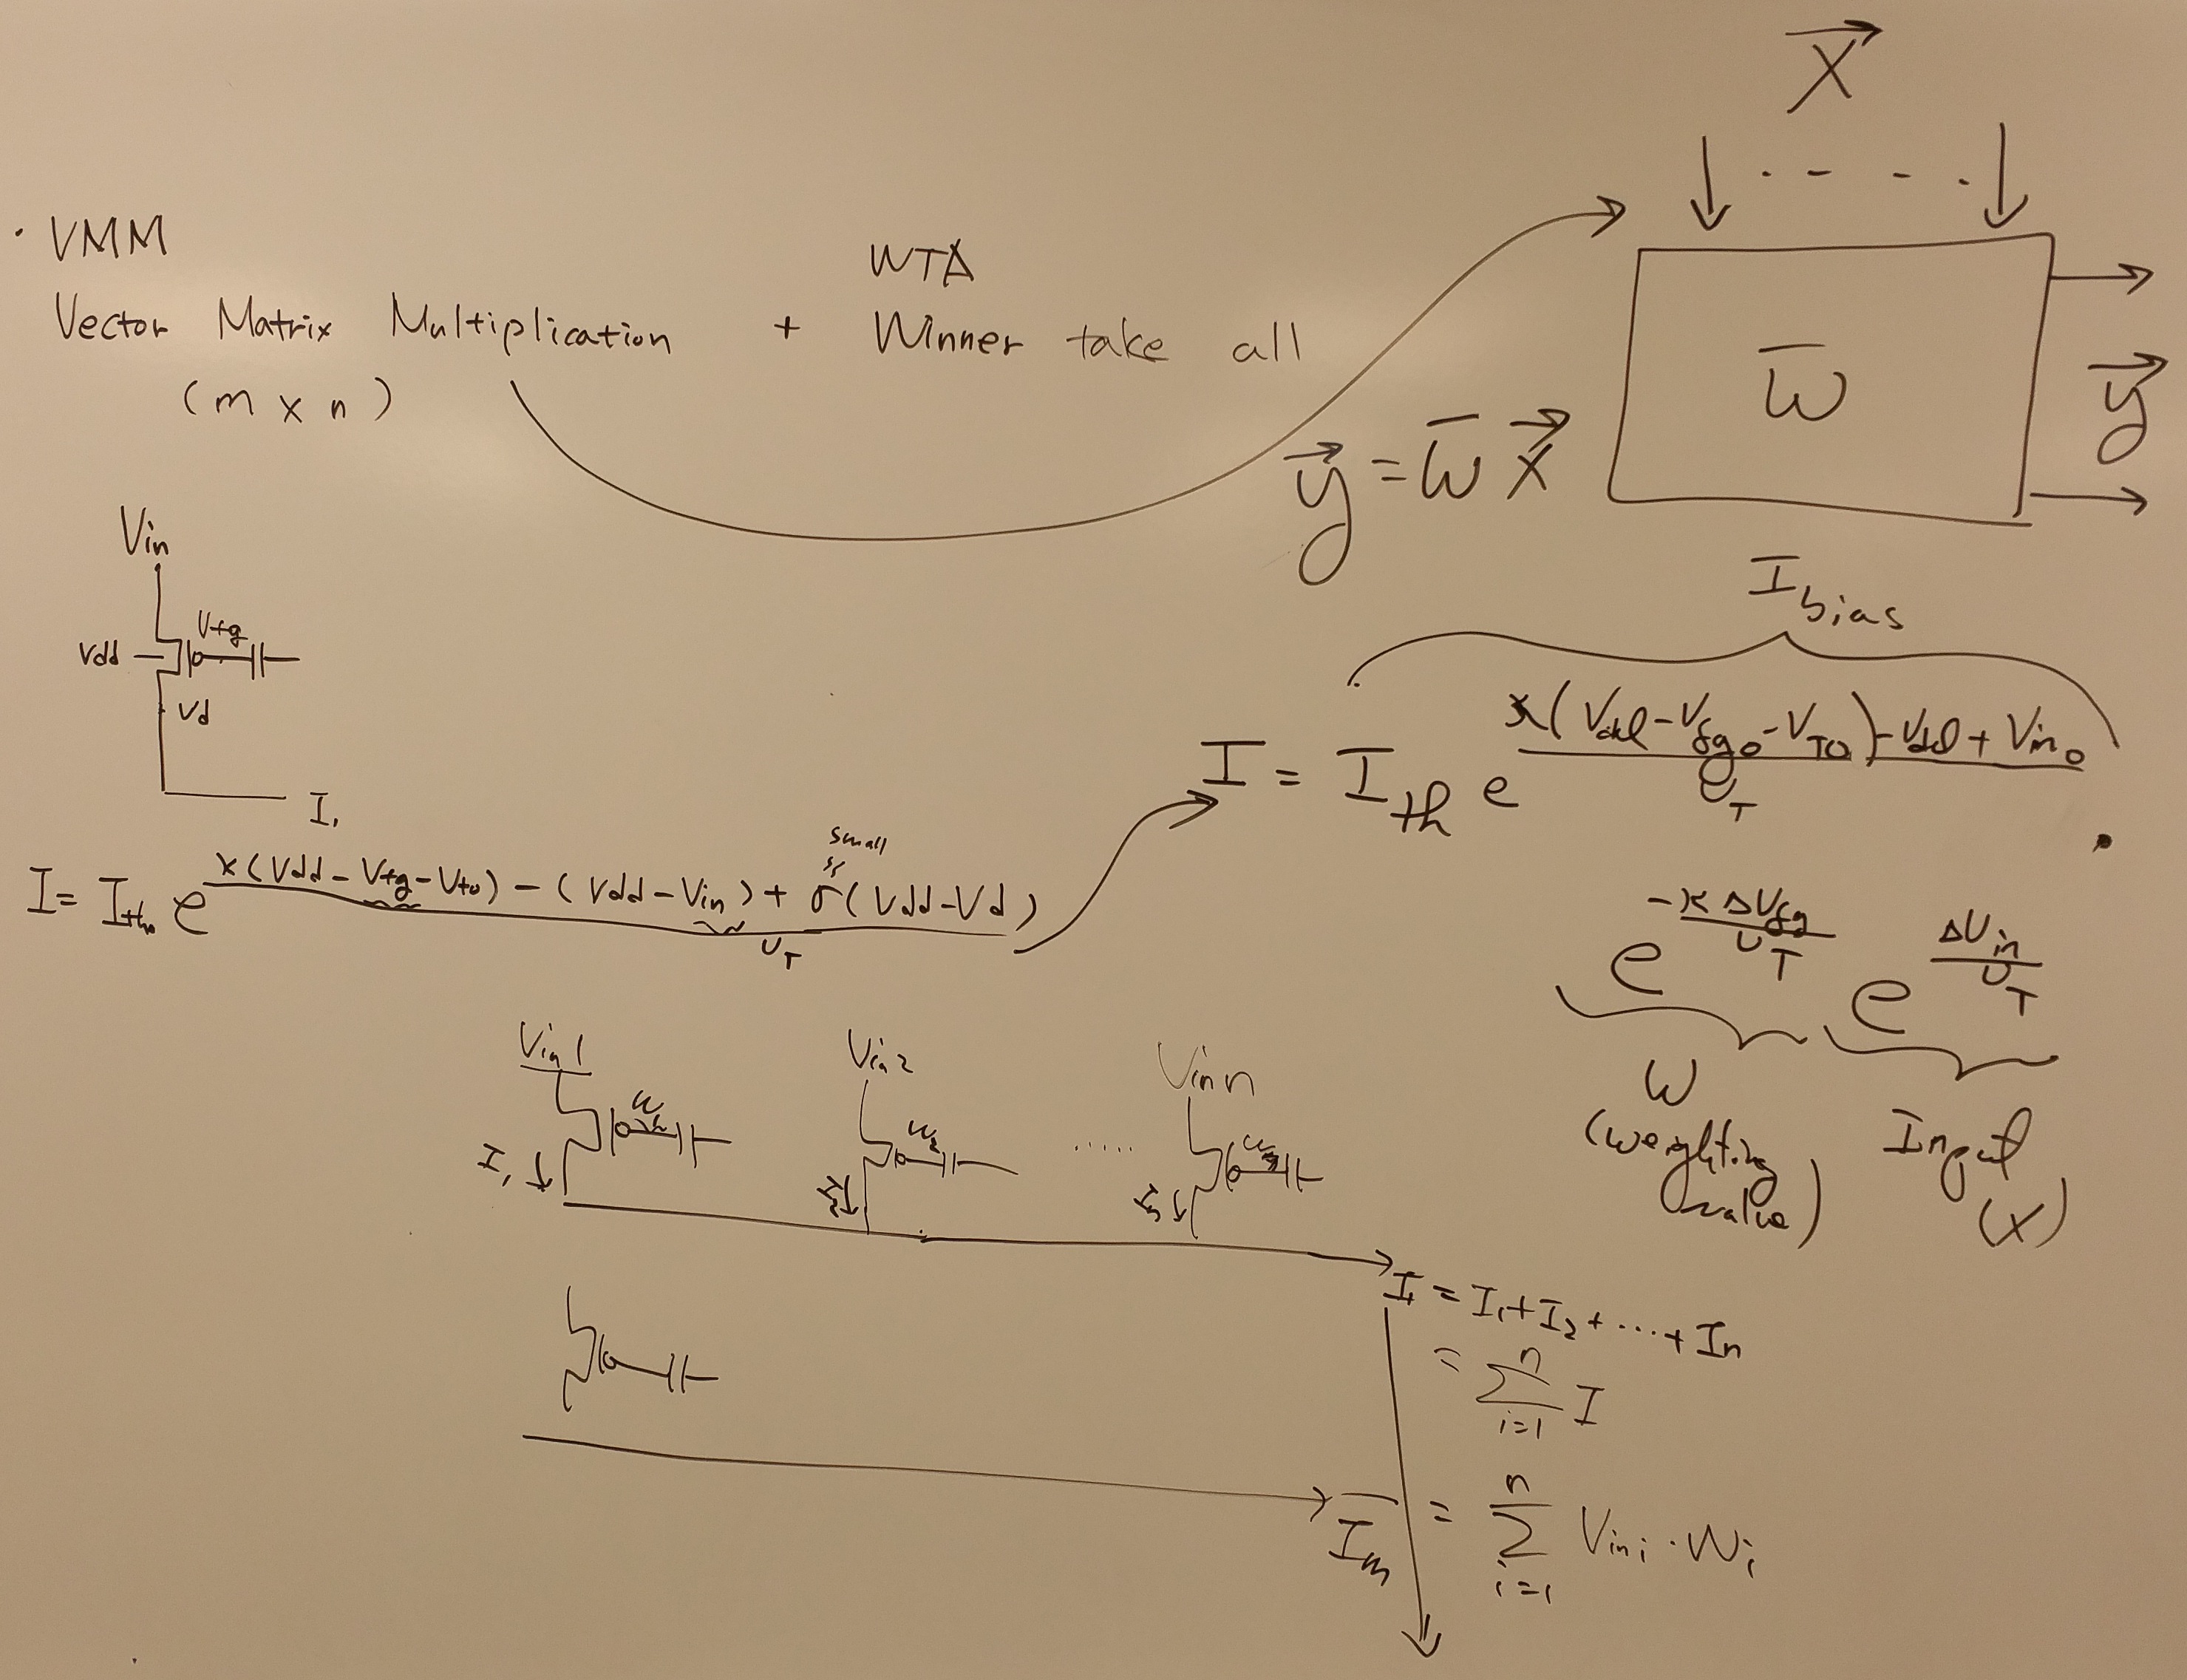 X
· VMM
WTA
Vector Matrix Multiplication + Winner take all
(m x n)
W
y
y = W X
Vin
Vfg
Vdd
Vd
I₁
I bias
I = Ith e κ(Vdd - Vfg₀ - VT0) - Vdd + Vin₀ / UT ·
small
I = Ith e κ(Vdd - Vfg - Vto) - (Vdd - Vin) + σ(Vdd - Vd) / UT
e -κ ΔVfg / UT e ΔVin / UT
W
(weighting value)
Input
(X)
Vin1 Vin2 ..... Vin n
W₂
I₁
I₁ = I₁ + I₂ + ... + In
= Σ n i=1 I
Im
= Σ n i=1 Vin i · Wi